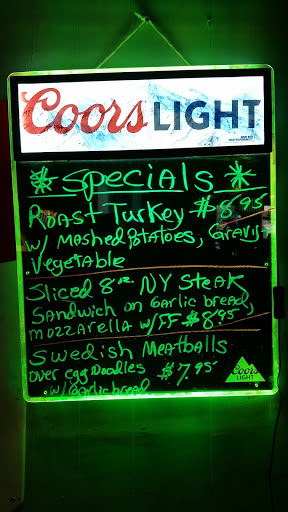 Coors LIGHT
* Specials *
Roast Turkey $8.95
w/ Mashed Potatoes, Gravy +
Vegetable
Sliced 8oz. NY Steak
Sandwich on Garlic bread,
mozzarella w/FF $8.95
Swedish Meatballs
over egg Noodles $7.95
w/Garlic bread
Coors
LIGHT